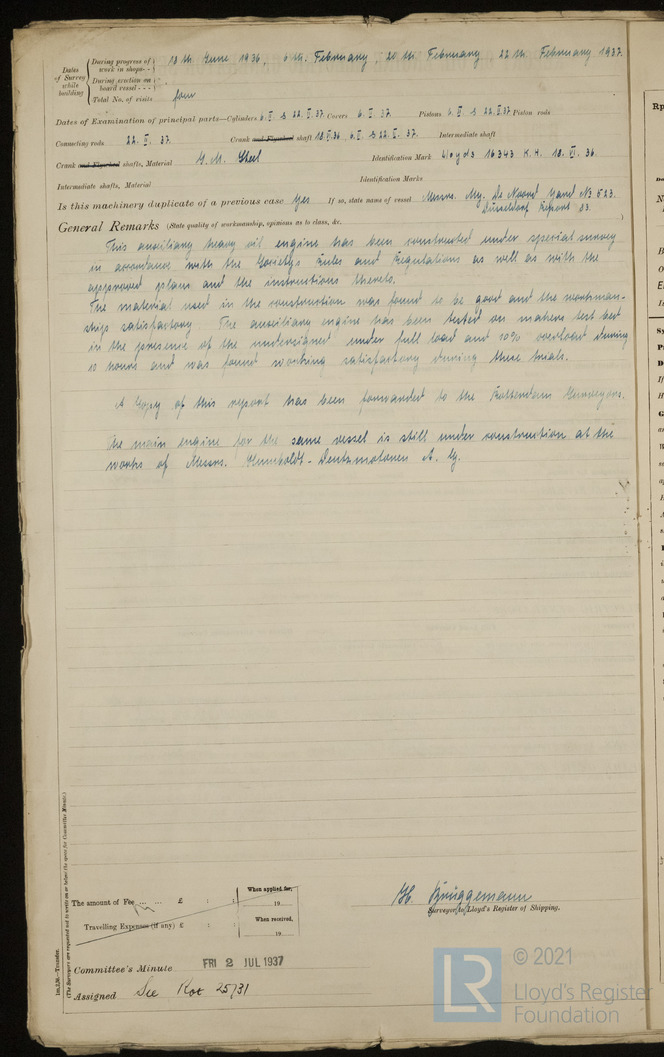 Dates of Survey while building
During progress of work in shops - - 18th June 1936, 6th February, 20th February 22th February 1937.
During erection on board vessel - - -
Total No. of visits four
Dates of Examination of principal parts—Cylinders 6.II. & 22.II.37 Covers 6.II.37 Pistons 6.II. & 22.II.37 Piston rods
Connecting rods 22.II.37. Crank and Flywheel shaft 18.VI.36, 6.II. & 22.II.37. Intermediate shaft
Crank and Flywheel shafts, Material S.M. Steel Identification Mark Lloyds 16343 K.H. 18.VI.36.
Intermediate shafts, Material Identification Marks
Is this machinery duplicate of a previous case Yes If so, state name of vessel Messrs. My. De Noord Yard No 523.
Düsseldorf Report 83.
General Remarks (State quality of workmanship, opinions as to class, &c.
This auxiliary heavy oil engine has been constructed under special survey
in accordance with the Society's Rules and Regulations as well as with the
approved plans and the instructions thereto.
The material used in the construction was found to be good and the workman-
ship satisfactory. The auxiliary engine has been tested on makers test bed
in the presence of the undersigned under full load and 10% overload during
10 hours and was found working satisfactory during these trials.
A Copy of this report has been forwarded to the Rotterdam Surveyors.
The main engine for the same vessel is still under construction at the
works of Messrs. Humboldt-Deutzmotoren A.G.
The amount of Fee ... ... £ : :
When applied for,
19
Travelling Expenses (if any) £ : :
When received,
19
H. Brüggemann
Surveyor to Lloyd's Register of Shipping.
Committee's Minute FRI 2 JUL 1937
Assigned See Rot 25731
(The Surveyors are requested not to write on or below the space for Committee Minute.)
© 2021
Lloyd's Register
Foundation
LR